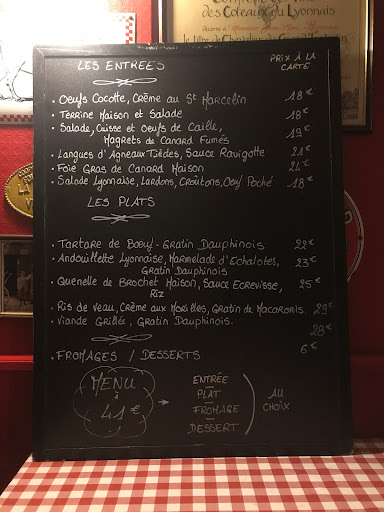 des Coteaux du Lyonnais
LES ENTRÉES PRIX À LA CARTE
• Oeufs Cocotte, Crème au St Marcelin 18€
• Terrine Maison et Salade 18€
• Salade, Cuisse et Oeufs de Caille,
Magrets de Canard Fumés 19€
• Langues d'Agneaux Tièdes, Sauce Ravigotte 21€
• Foie Gras de Canard Maison 24€
• Salade Lyonnaise, Lardons, Croûtons, Oeuf Poché 18€
LES PLATS
• Tartare de Boeuf - Gratin Dauphinois 22€
• Andouillette Lyonnaise, Marmelade d'Echalotes,
Gratin Dauphinois 23€
• Quenelle de Brochet Maison, Sauce Ecrevisse,
Riz 25€
• Ris de veau, Crème aux Morilles, Gratin de Macaronis. 29€
• Viande Grillée, Gratin Dauphinois. 28€
• FROMAGES / DESSERTS 6€
MENU à 41€
ENTRÉE
PLAT
FROMAGE
DESSERT
AU CHOIX